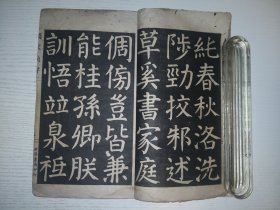 純春秋洛洗
陟勁挍邪述
草溪書家庭
倜傍豈皆兼
能桂孫卿朕
訓悟竝泉祗